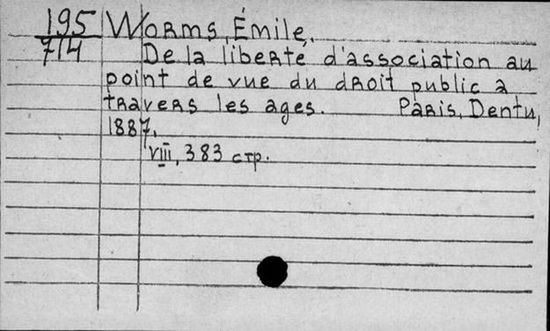 195 Worms, Émile.
714 De la liberté d'association au
point de vue du droit public à
travers les ages. Paris, Dentu,
1887.
VIII, 383 стр.